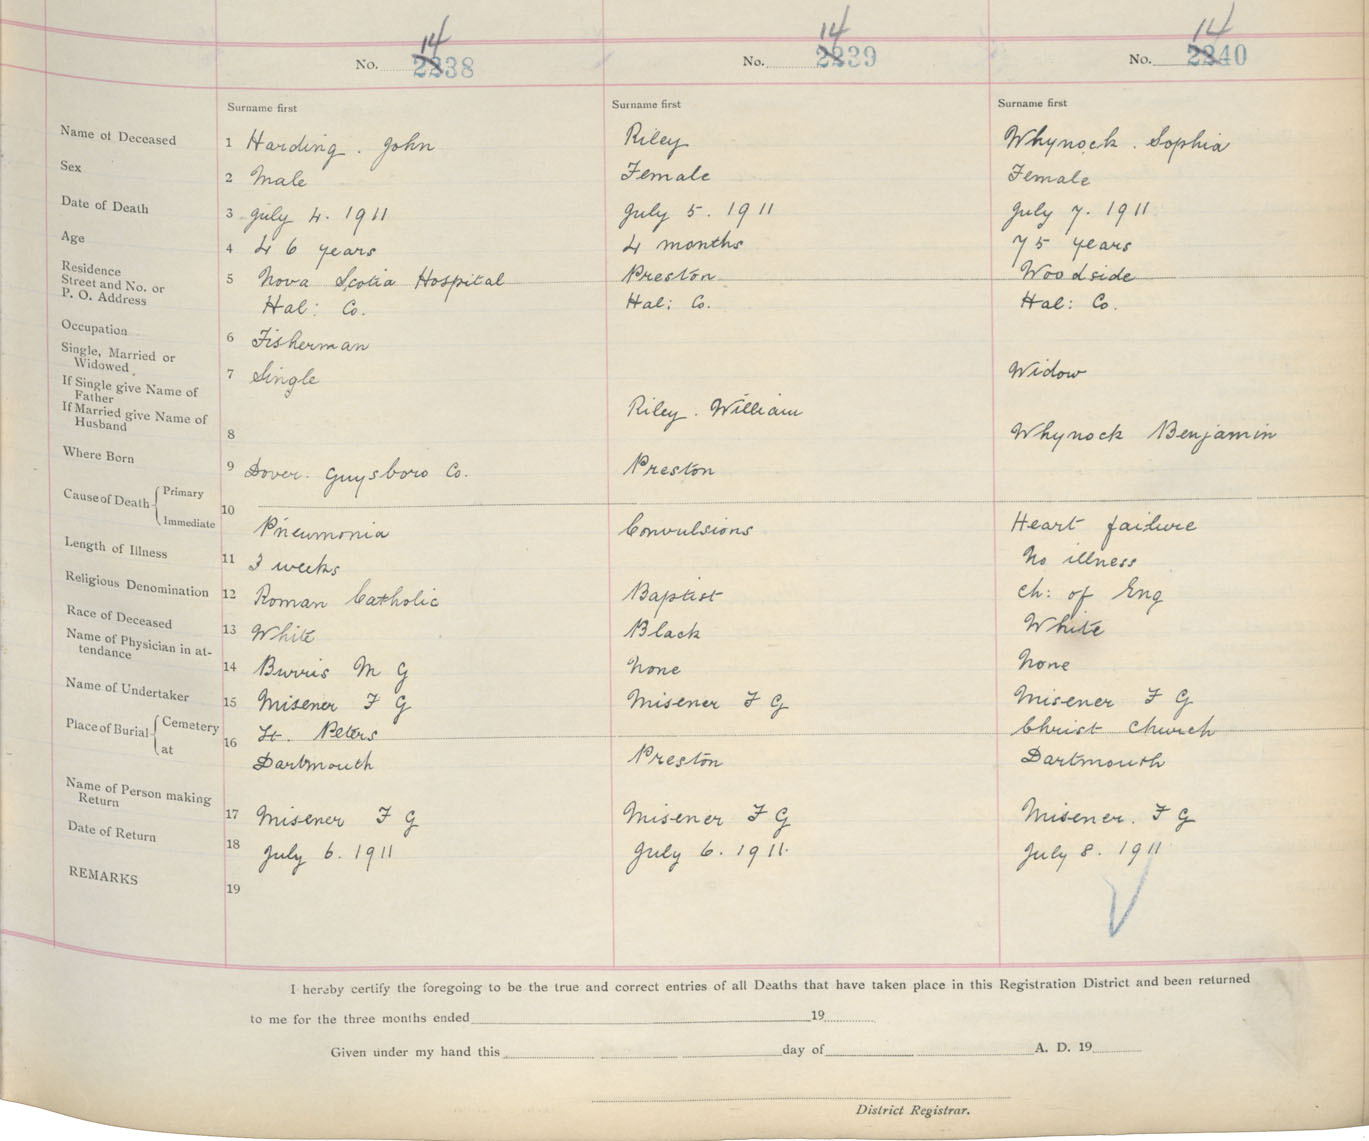 14 14 14
No. 2238 No. 2239 No. 2240
Surname first Surname first Surname first
Name of Deceased 1 Harding. John Riley Whynock. Sophia
Sex 2 Male Female Female
Date of Death 3 July 4. 1911 July 5. 1911 July 7. 1911
Age 4 46 years 4 months 75 years
Residence
Street and No. or 5 Nova Scotia Hospital Preston Woodside
P. O. Address Hal: Co. Hal: Co. Hal: Co.
Occupation 6 Fisherman
Single, Married or
Widowed 7 Single Widow
If Single give Name of
Father Riley. William
If Married give Name of
Husband 8 Whynock Benjamin
Where Born 9 Dover. Guysboro Co. Preston
Cause of Death Primary 10
Immediate Pneumonia Convulsions Heart failure
Length of Illness 11 3 weeks No illness
Religious Denomination 12 Roman Catholic Baptist Ch: of Eng
Race of Deceased 13 White Black White
Name of Physician in at-
tendance 14 Burris M G None None
Name of Undertaker 15 Misener F G Misener F G Misener F G
Place of Burial Cemetery 16 St. Peters Christ Church
at Dartmouth Preston Dartmouth
Name of Person making
Return 17 Misener F G Misener F G Misener. F G
Date of Return 18 July 6. 1911 July 6. 1911. July 8. 1911
REMARKS 19
I hereby certify the foregoing to be the true and correct entries of all Deaths that have taken place in this Registration District and been returned
to me for the three months ended 19
Given under my hand this day of A. D. 19
District Registrar.